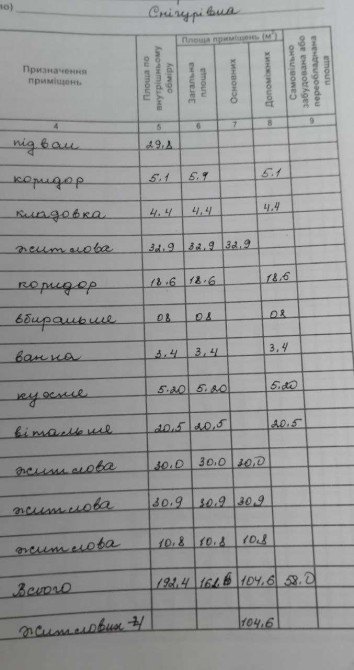 но)
Снігурівна
Призначення приміщень
Площа по внутрішньому обміру
Площа приміщень (м²)
Загальна площа
Основних
Допоміжних
Самовільно забудована або переобладнана площа
4 5 6 7 8 9
підвал 29,8
коридор 5.1 5.1 5.1
кладовка 4.4 4,4 4,4
житлова 32,9 32,9 32,9
коридор 18.6 18.6 18,6
вбиральне 08 08 08
ванна 3,4 3,4 3,4
кухне 5.20 5,20 5,20
вітальне 20,5 20,5 20,5
житлова 30.0 30,0 30,0
житлова 30.9 30,9 30,9
житлова 10.8 10.8 10,8
Всього 192,4 104,6 58.0
житлових 104,6